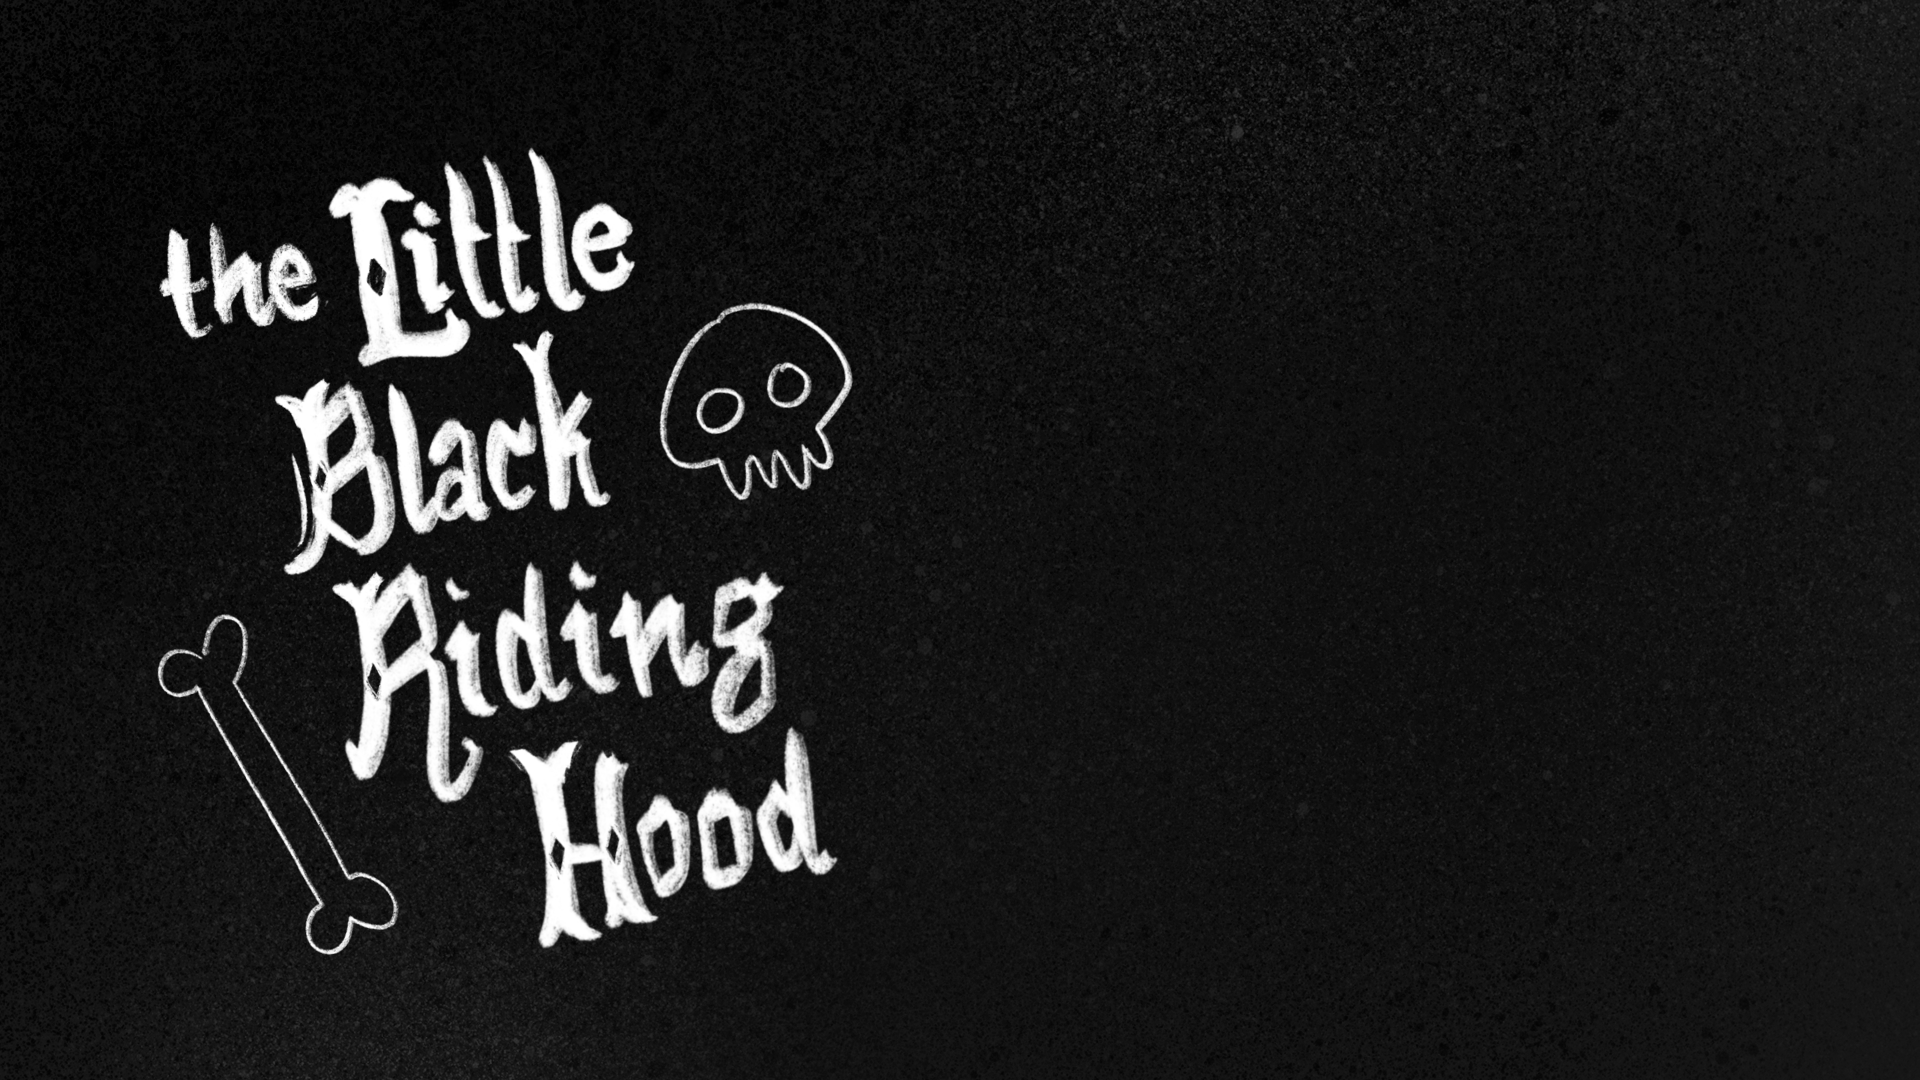 the Little
Black
Riding
Hood